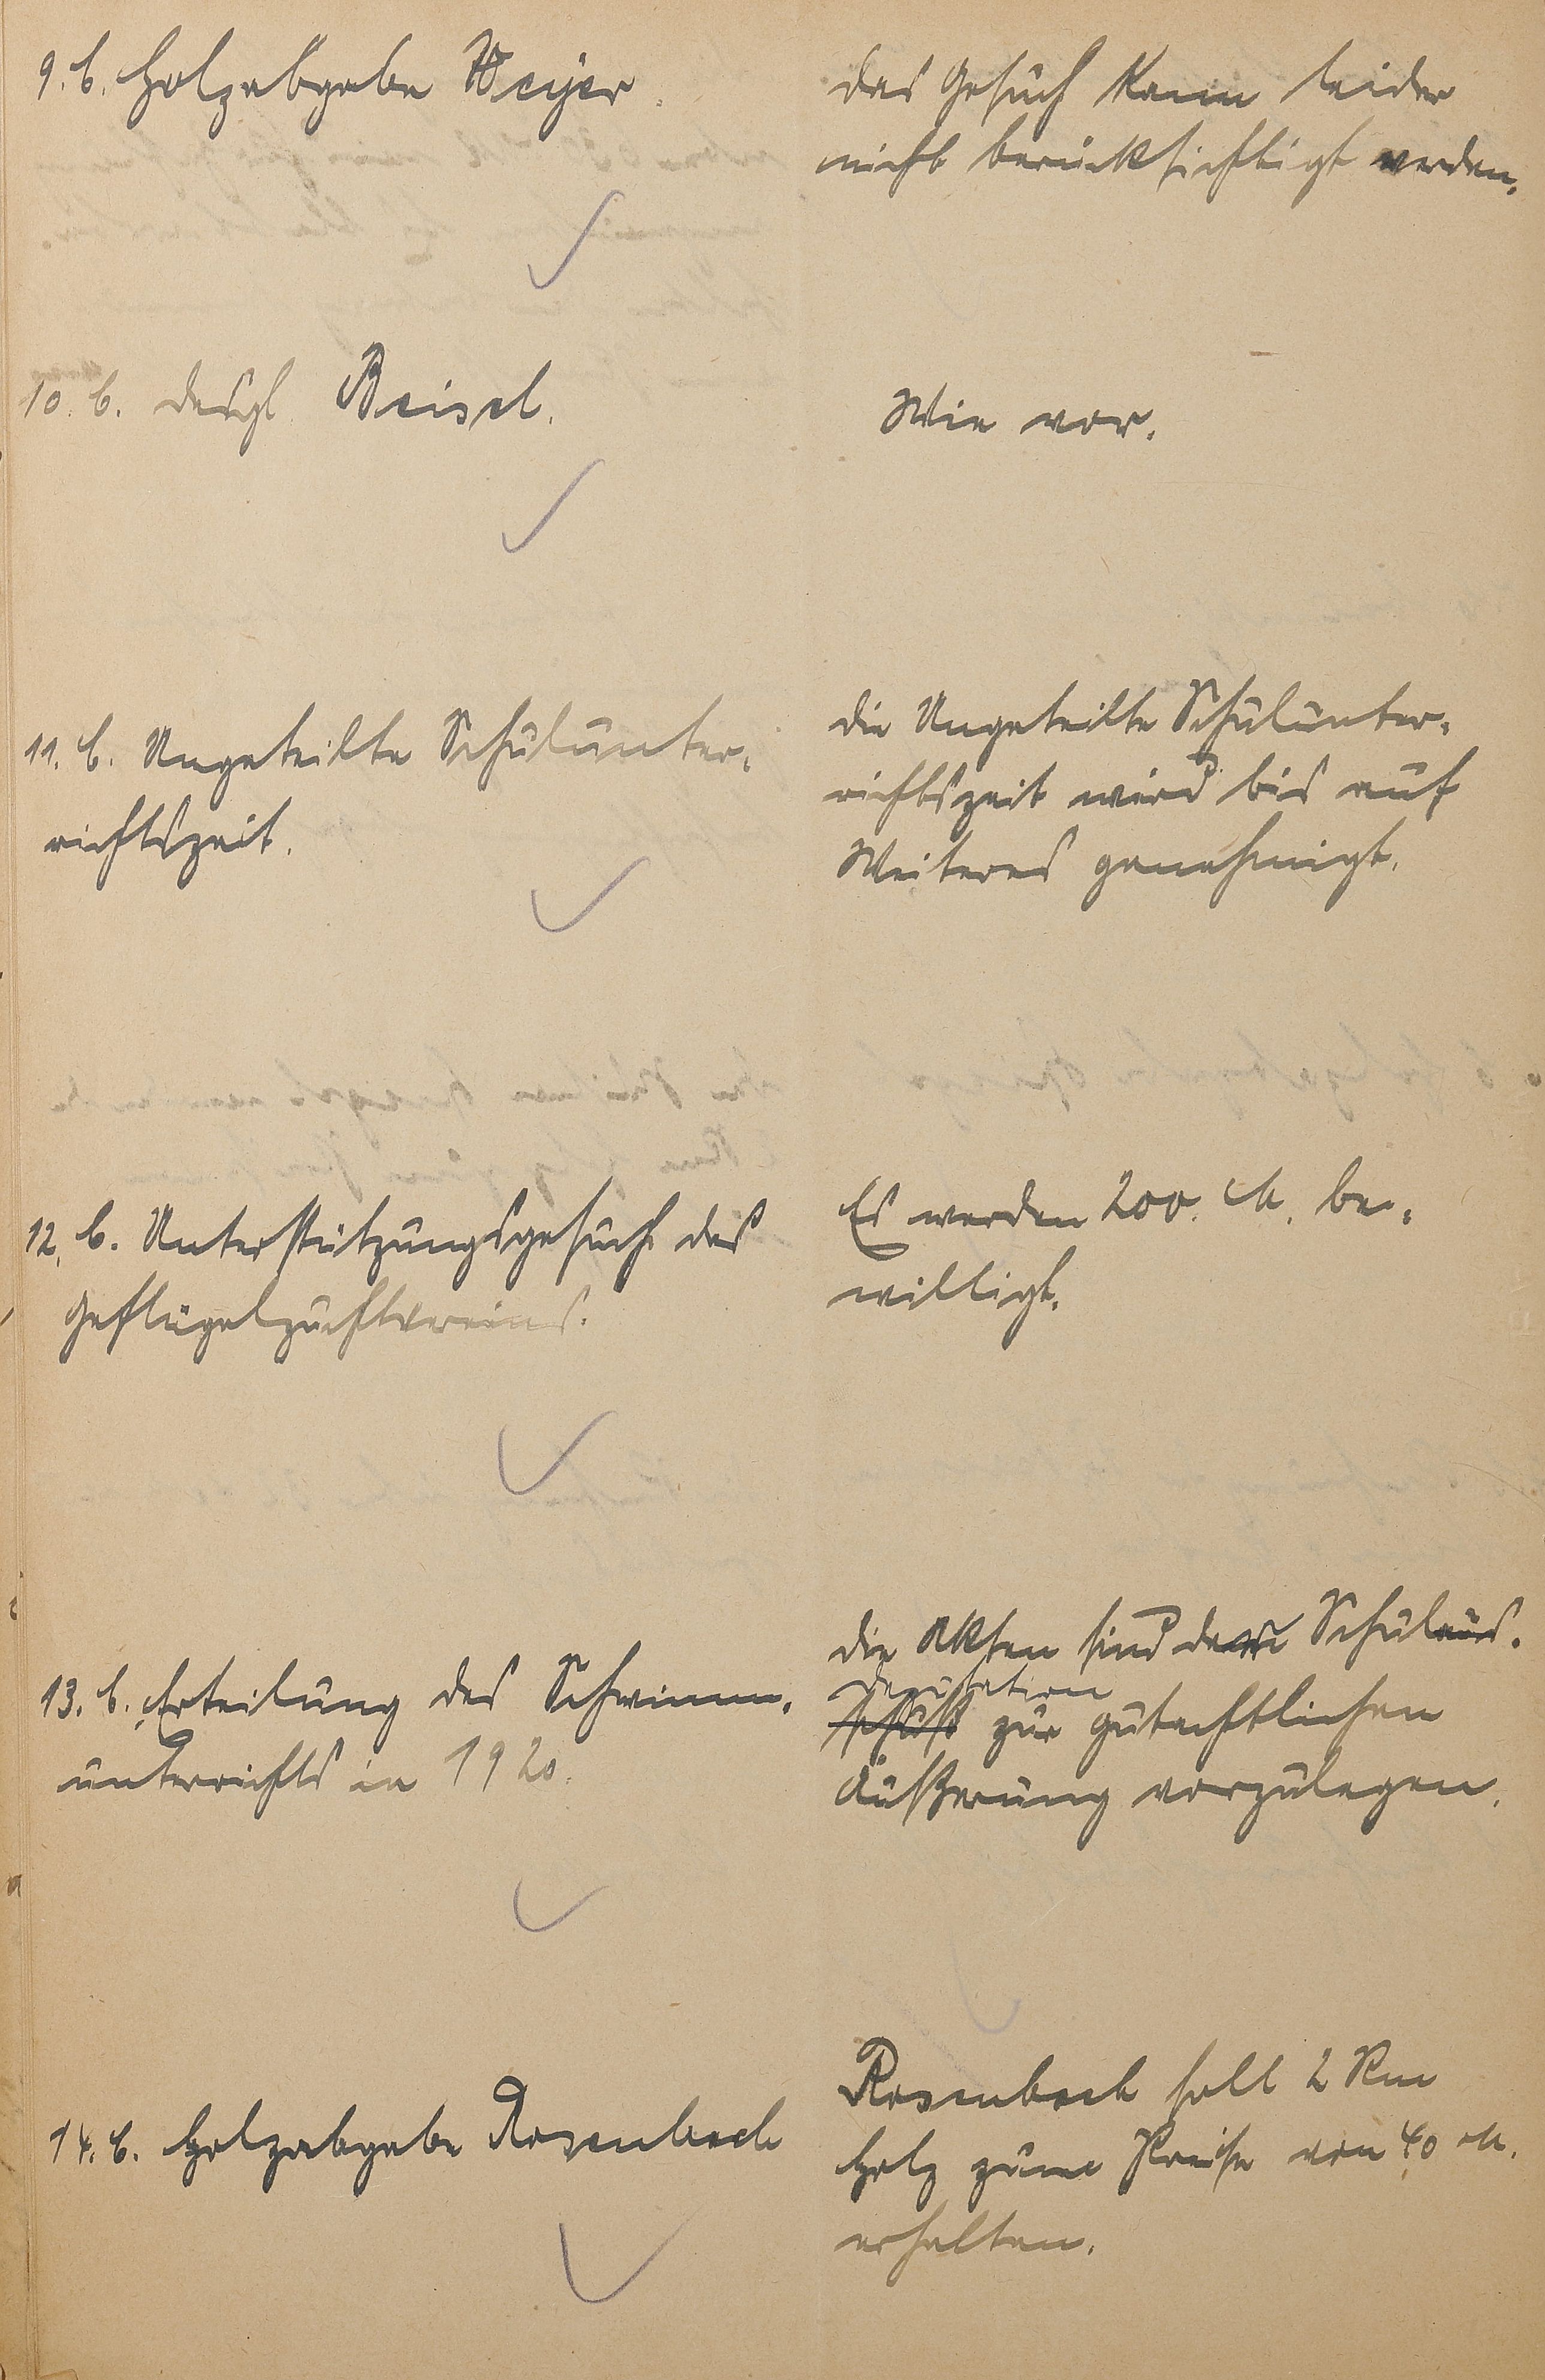 9. b. Holzabgabe Weyer.
Das Gesuch kann leider
nicht berücksichtigt werden.
10. b. desgl. Beisel.
Wie vor.
11. b. Ungeteilte Schulunter-
richtszeit.
Die Ungeteilte Schulunter-
richtszeit wird bis auf
Weiteres genehmigt.
12. b. Unterstützungsgesuch des
Geflügelzuchtvereins.
Es werden 200. M. be-
willigt.
13. b. Erteilung des Schwimm-
unterrichts in 1920.
Die Akten sind der Schulaus-
deputation
schuß zur gutachtlichen
Äußerung vorzulegen.
14. b. Holzabgabe Rosenbach
Rosenbach soll 2 Rm
Holz zum Preise von 40 M.
erhalten.